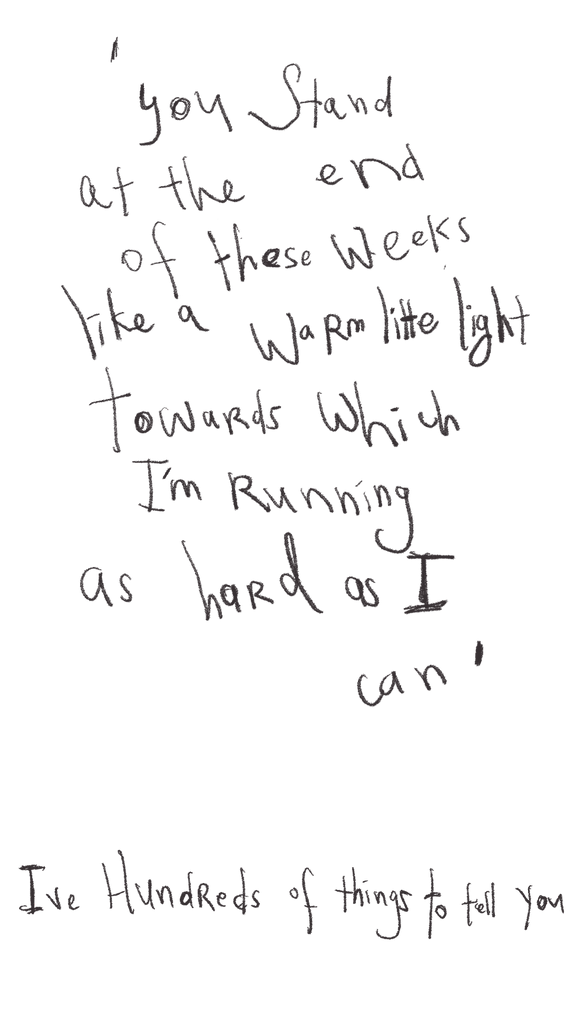 'you Stand
at the end
of these weeks
like a warm litte light
towards which
I'm Running
as hard as I
can'
Ive Hundreds of things to tell you